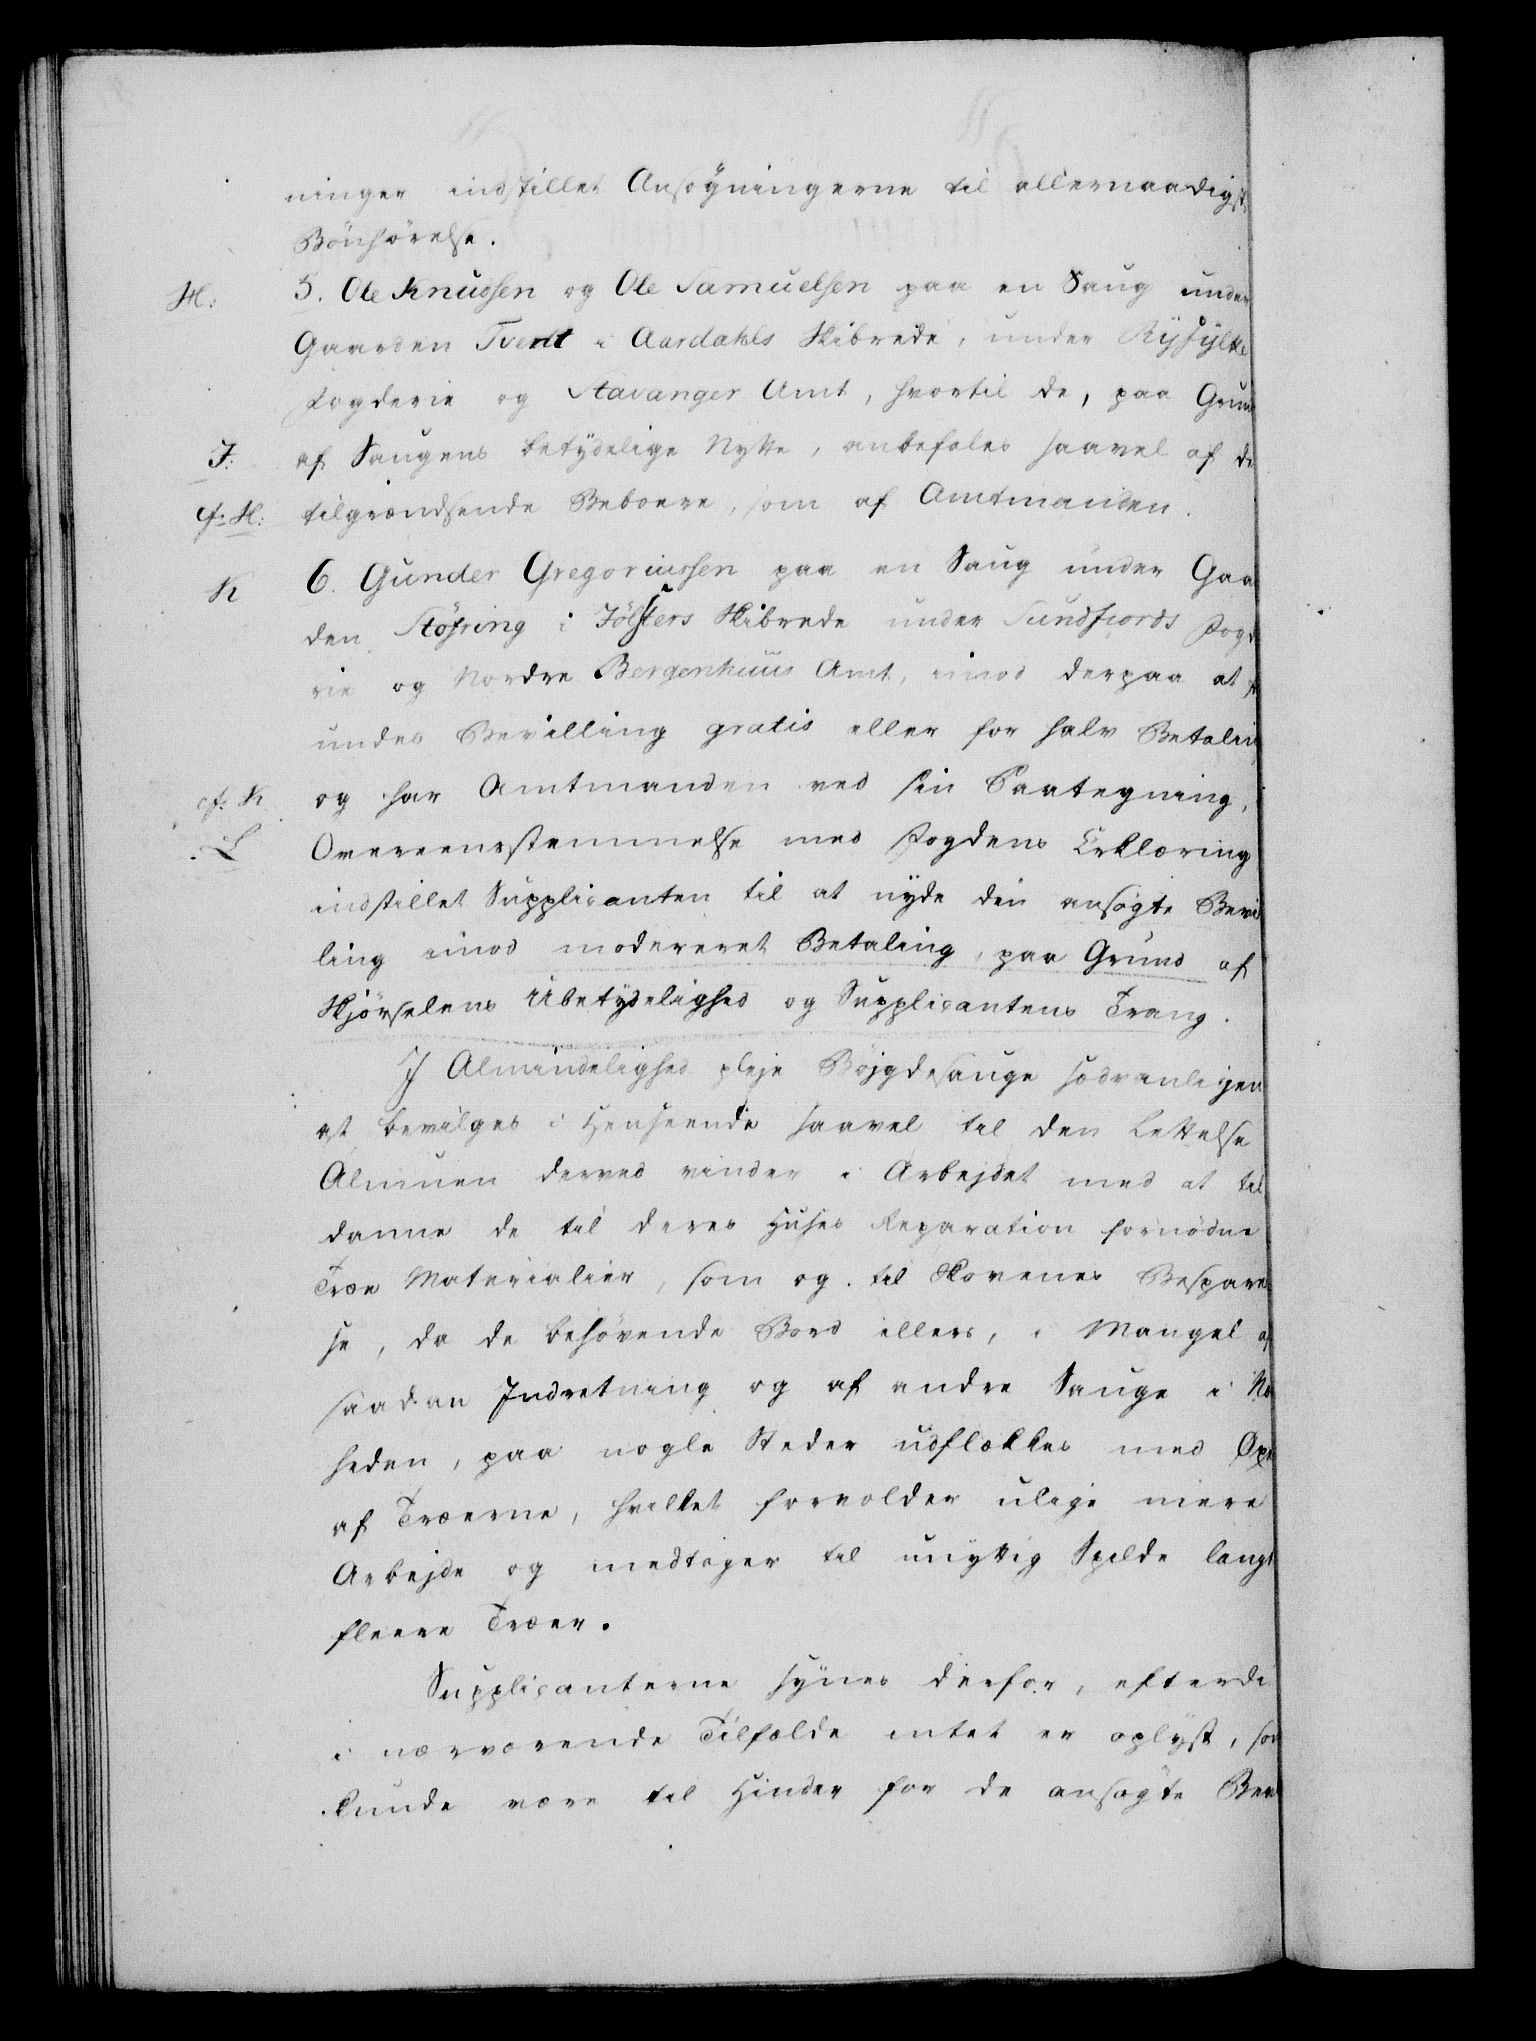 ninger indstillet Ansøgningerne til allernaadigst
Bönhörelse.
H: 5. Ole Knudsen og Ole Samuelsen paa en Saug under
Gaarden Tveit i Aardahls Skibrede, under Ryfylke
Fogderie og Stavanger Amt, hvortil de, paa Grund
J: af Saugens betydelige Nytte, anbefales saavel af de
cf. H: tilgrændsende Beboere, som af Amtmanden.
K 6. Gunder Gregoriussen paa en Saug under Gaa
den Stöfring i Jölsters Skibrede under Sundfiords Fogd
rie og Nordre Bergenhuus Amt, imod derpaa at
undes Bevilling gratis eller for halv Betalin
cf. K og har Amtmanden ved sin Paategning,
L Overeensstemmelse med Fogdens Erklæring
indstillet Supplicanten til at nyde den ansøgte Bevil
ling imod modereret Betaling, paa Grund af
Skjörselens Ubetydelighed og Supplicantens Trang.
I Almindelighed pleje Bøjgdesauge sædvanligen
at bevilges i Henseende saavel til den Lettelse
Almuen derved vinder i Arbejdet med at til
danne de til deres Huses Reparation fornödne
Træe Materialier, som og til Skovenes Bespare
se, da de behövende Bord ellers, i Mangel af
saadan Indretning og af andre Sauge i Næ
heden, paa nogle Steder udflækkes med Øxe
af Træerne, hvilket forvolder ulige mere
Arbejde og medtager til unyttig Spilde langt
fleere Træer.
Supplicanterne synes derfor, efterdi
i nærværende Tilfælde intet er oplyst, som
kunde være til Hinder for de ansøgte Bev